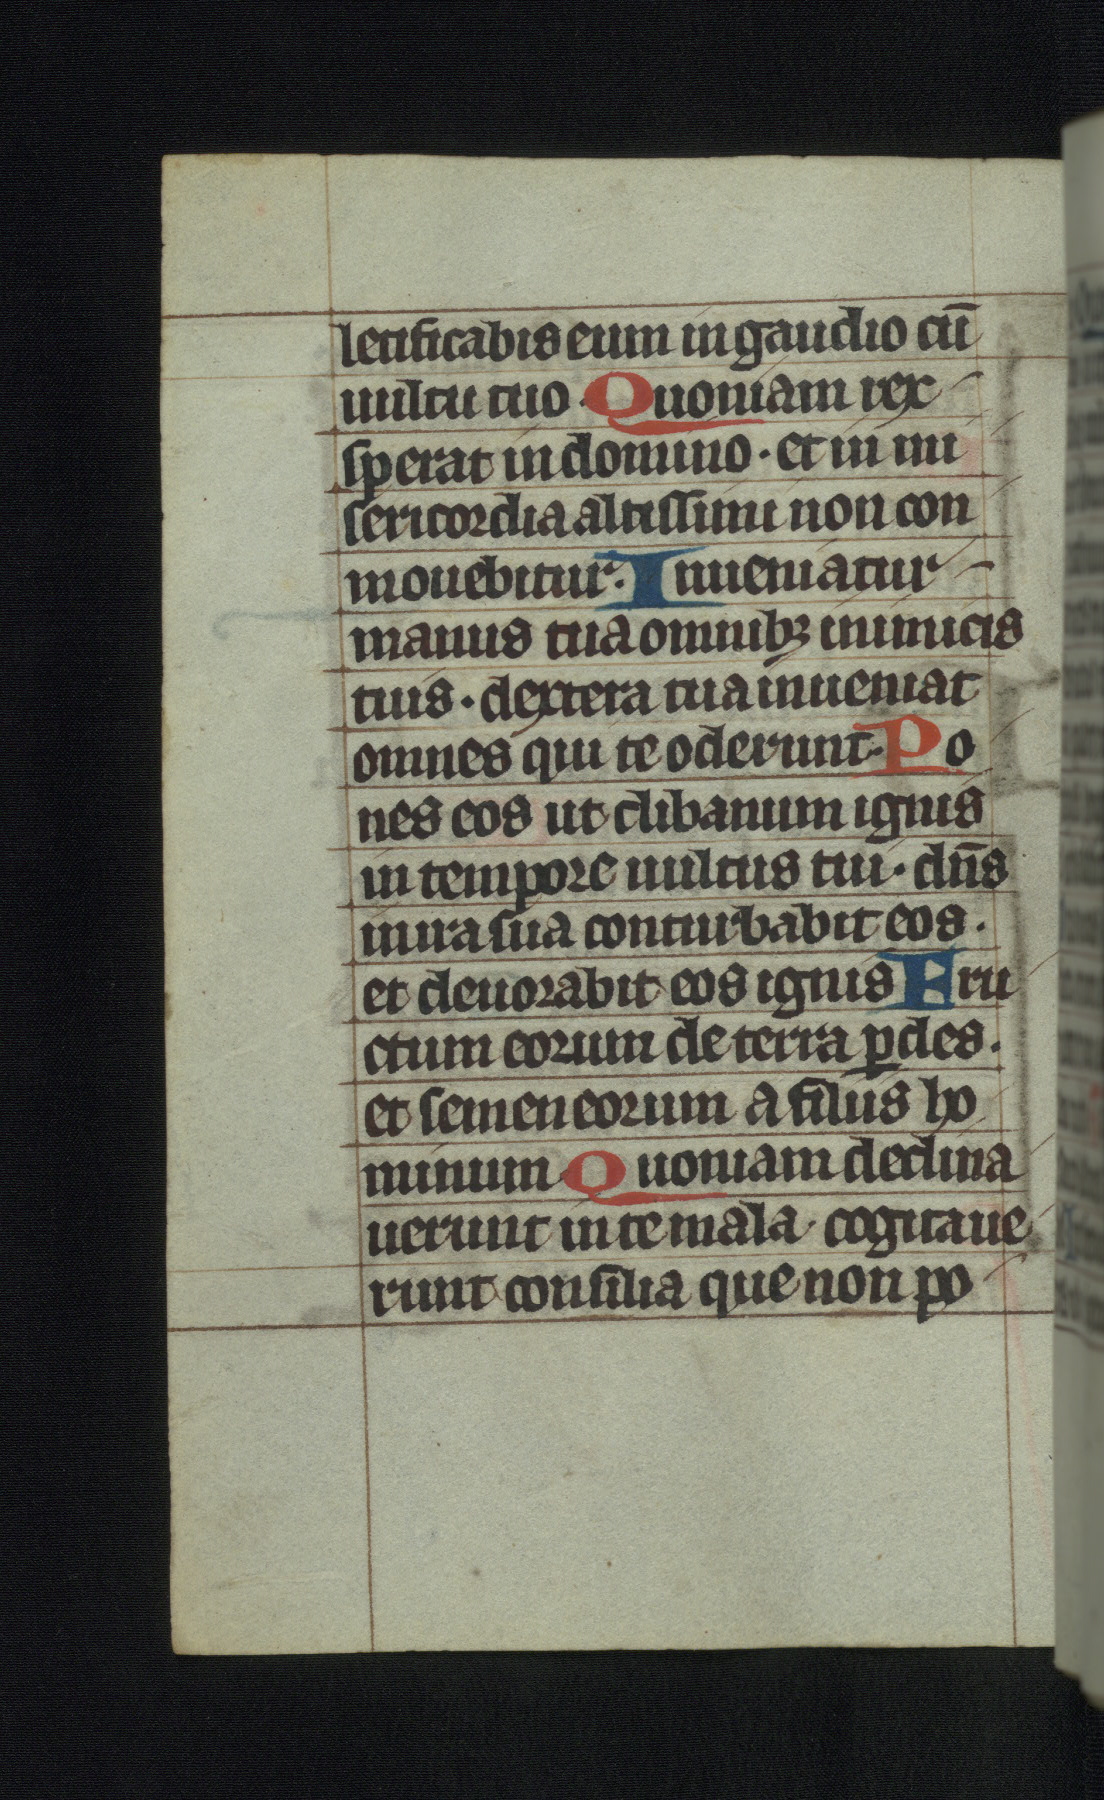 letificabis eum in gaudio cū
uultu tuo · Quoniam rex
sperat in domino · et in mi
sericordia altissimi non con
mouebitur. Inueniatur
manus tua omnibꝫ inimicis
tuis · dextera tua inueniat
omnes qui te oderunt · Po
nes eos ut clibanum ignis
in tempore uultus tui · dn̄s
in ira sua conturbabit eos .
et deuorabit eos ignis Fru
ctum eorum de terra ꝑdes .
et semen eorum a filiis ho
minum Quoniam declina
uerunt in te mala · cogitaue
runt consilia que non po